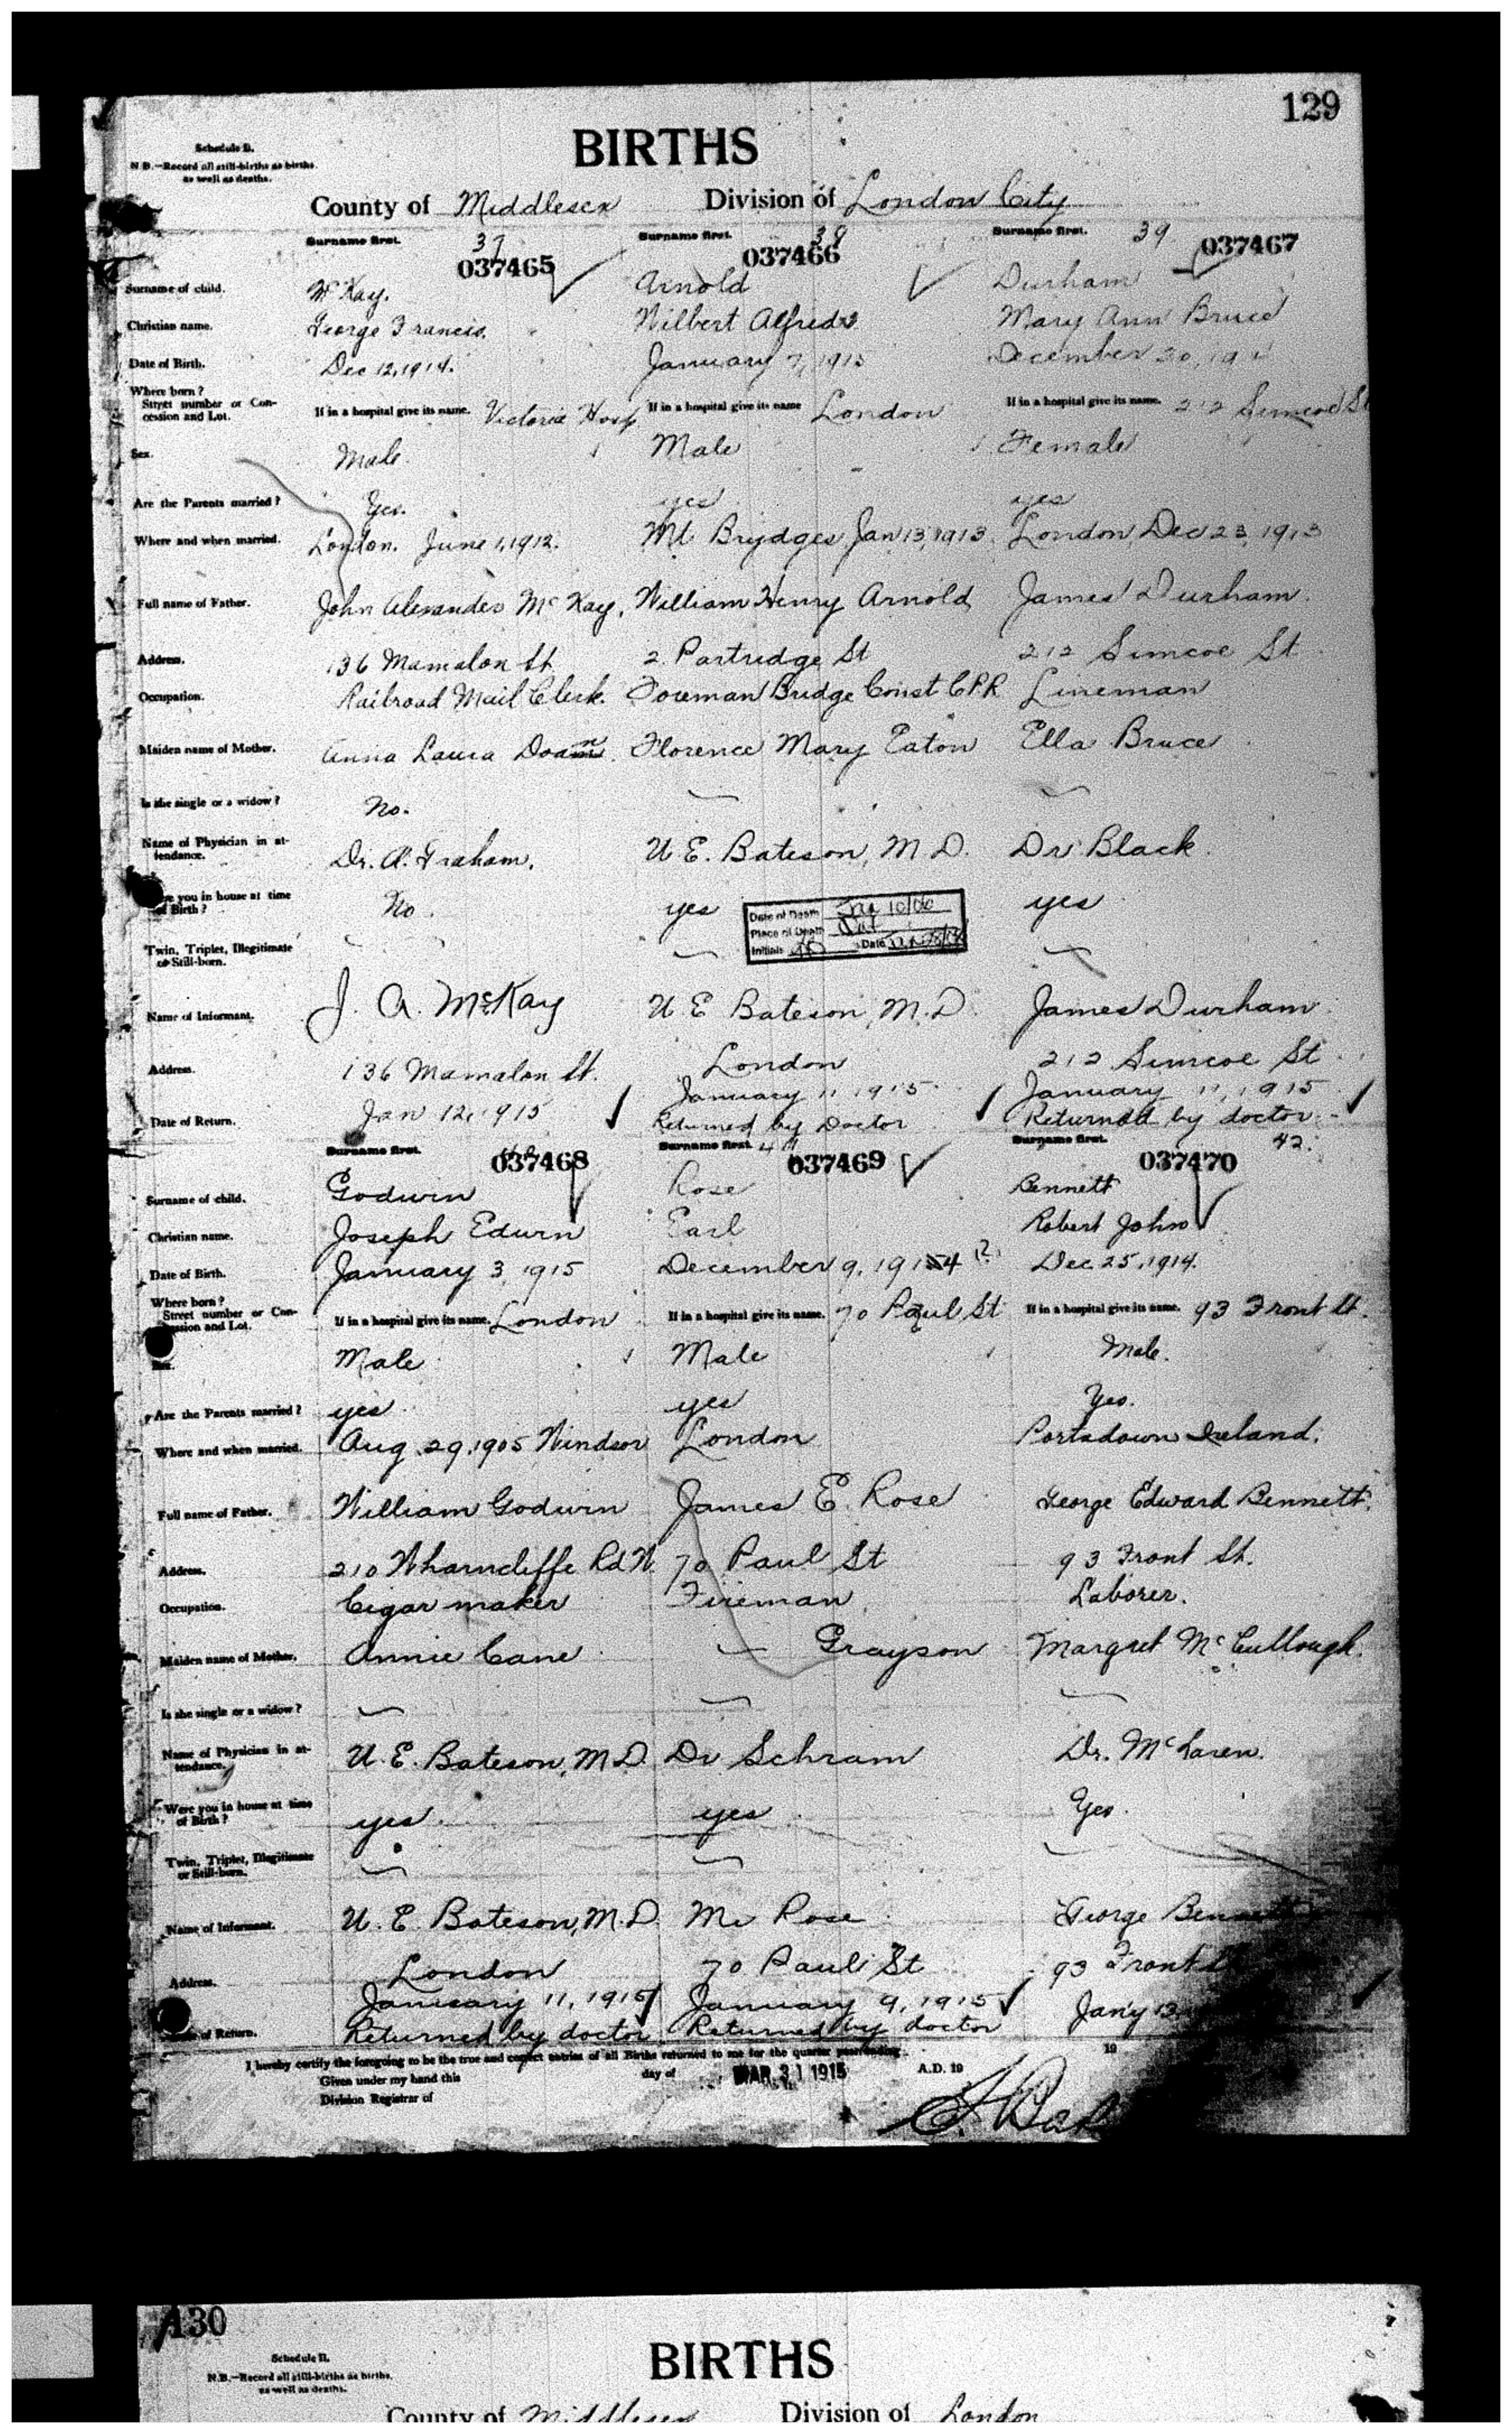 129
Schedule B.
N.B.—Record all still-births as births
as well as deaths.
BIRTHS
County of Middlesex Division of London City
Surname first. 37 Surname first. 38 Surname first. 39
037465 037466 037467
Surname of child. McKay. Arnold Durham
Christian name. George Francis. Wilbert Alfred Mary Ann Bruce
Date of Birth. Dec 12, 1914. January 7, 1915 December 20, 191
Where born?
Street number or Con-
cession and Lot. If in a hospital give its name. Victoria Hosp If in a hospital give its name London If in a hospital give its name. 212 Simcoe St
Sex. Male. Male Female
Are the Parents married? Yes. yes yes
Where and when married. London. June 1, 1912. Mt Brydges Jan 13, 1913 London, Dec 23, 1913
Full name of Father. John Alexander McKay. William Henry Arnold James Durham.
Address. 136 Mamalon St. 2 Partridge St 212 Simcoe St
Occupation. Railroad Mail Clerk. Foreman Bridge Const CPR Lineman
Maiden name of Mother. Anna Laura Florence Mary Eaton Ella Bruce
Is she single or a widow? No. — —
Name of Physician in at-
tendance. Dr. A. Graham. U E. Bateson, M D. Dr Black.
you in house at time
of Birth? No. yes yes
Date of Death
Place of Death
Initials Date
Twin, Triplet, Illegitimate
or Still-born. — —
Name of Informant. J. A. McKay U E Bateson, M.D. James Durham
Address. 136 Mamalon St. London 212 Simcoe St
January 11 1915 January 11, 1915
Date of Return. Jan 12, 1915 Returned by Doctor Returned by doctor
Surname first. Surname first. Surname first. 42.
037468 037469 037470
Surname of child. Godwin Rose Bennett
Christian name. Joseph Edwin Earl Robert John
Date of Birth. January 3, 1915 December 9, 1914 (?) Dec 25, 1914.
Where born?
Street number or Con-
cession and Lot. If in a hospital give its name. London If in a hospital give its name. 70 Paul St If in a hospital give its name. 93 Front St.
Sex. Male Male Male.
Are the Parents married? yes yes Yes.
Where and when married. Aug. 29, 1905 Windsor London Portadown Ireland.
Full name of Father. William Godwin James E. Rose George Edward Bennett.
Address. 210 Wharncliffe Rd N. 70 Paul St 93 Front St.
Occupation. Cigar maker Fireman Laborer.
Maiden name of Mother. Annie Cane — Grayson Margret McCullough.
Is she single or a widow? — — —
Name of Physician in at-
tendance. U. E. Bateson, M D. Dr Schram Dr. McLaren.
Were you in house at time
of Birth? yes. yes Yes.
Twin, Triplet, Illegitimate
or Still-born. — — —
Name of Informant. U. E. Bateson, M.D. Mr Rose George Bennett
Address. London 70 Paul St 93 Front St
January 11, 1915 January 9, 1915 Jany 13,
of Return. Returned by doctor Returned by doctor
I hereby certify the foregoing to be the true and correct entries of all Births returned to me for the quarter year ending 19
Given under my hand this day of MAR 31 1915 A.D. 19
Division Registrar of
130
Schedule B.
N.B.—Record all still-births as births,
as well as deaths.
BIRTHS
County of Middlesex Division of London